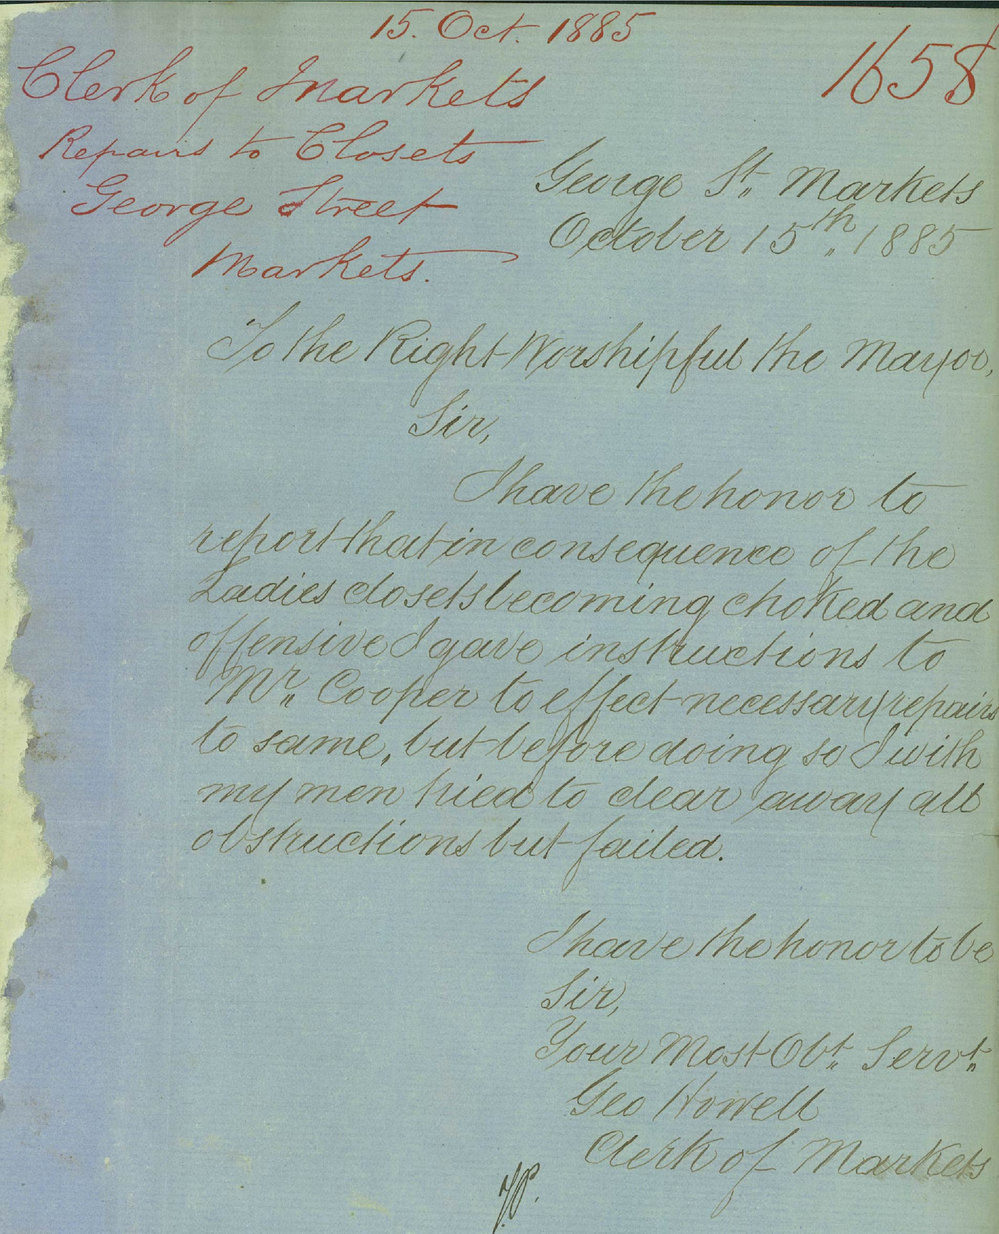 15. Oct. 1885
1658
Clerk of Markets
Repairs to Closets
George Street
Markets.
George St. Markets
October 15th, 1885
To the Right Worshipful the Mayor,
Sir,
I have the honor to
report that in consequence of the
Ladies closets becoming choked and
offensive I gave instructions to
Mr. Cooper to effect necessary repairs
to same, but before doing so I with
my men tried to clear away all
obstructions but failed.
I have the honor to be
Sir,
Your Most Obt. Servt.
Geo Howell
Clerk of Markets